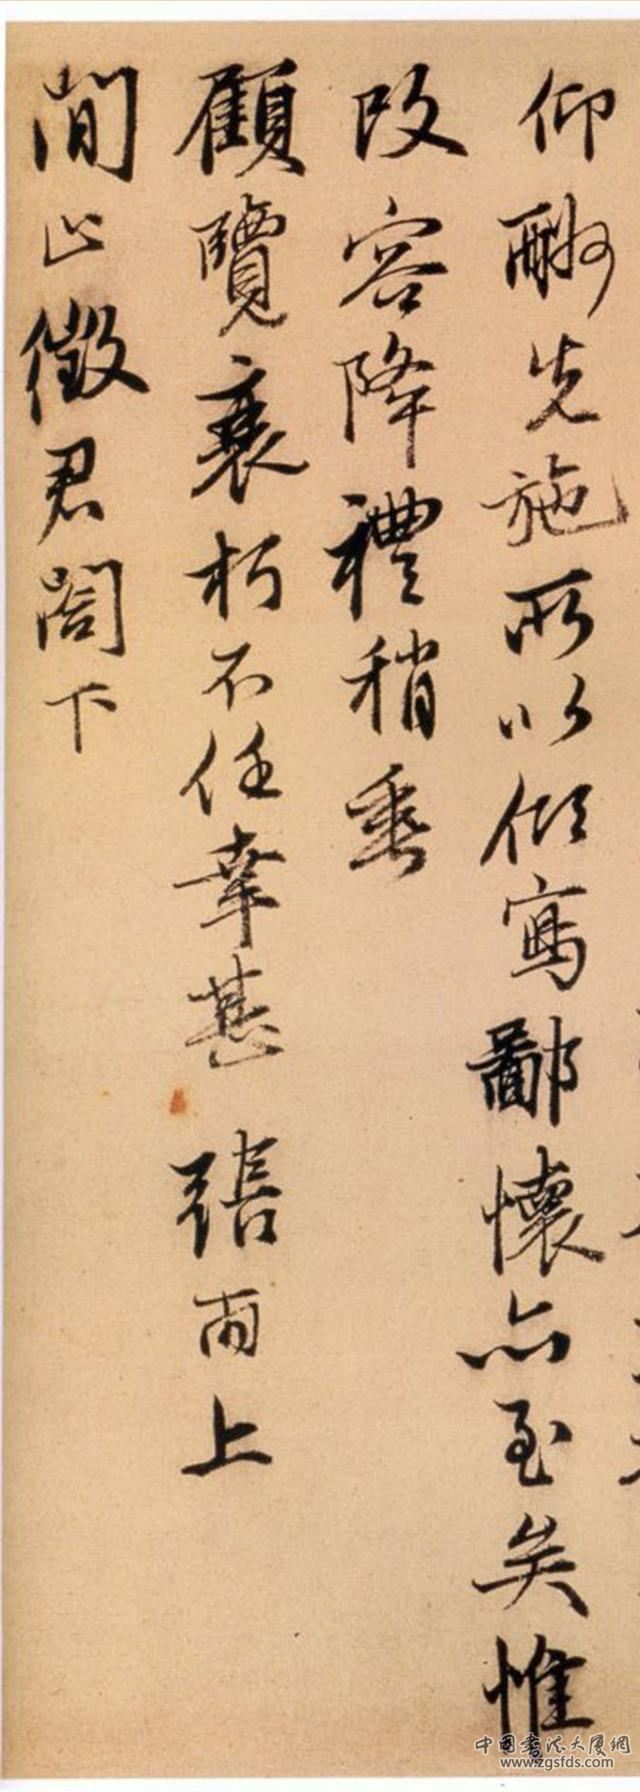 仰酬先施所以傾寫鄙懷亦至矣惟
改容降禮稍垂
顧覽衰朽不任幸甚 張雨上
閒止徵君閣下
中国书法大厦網
www.zgsfds.com